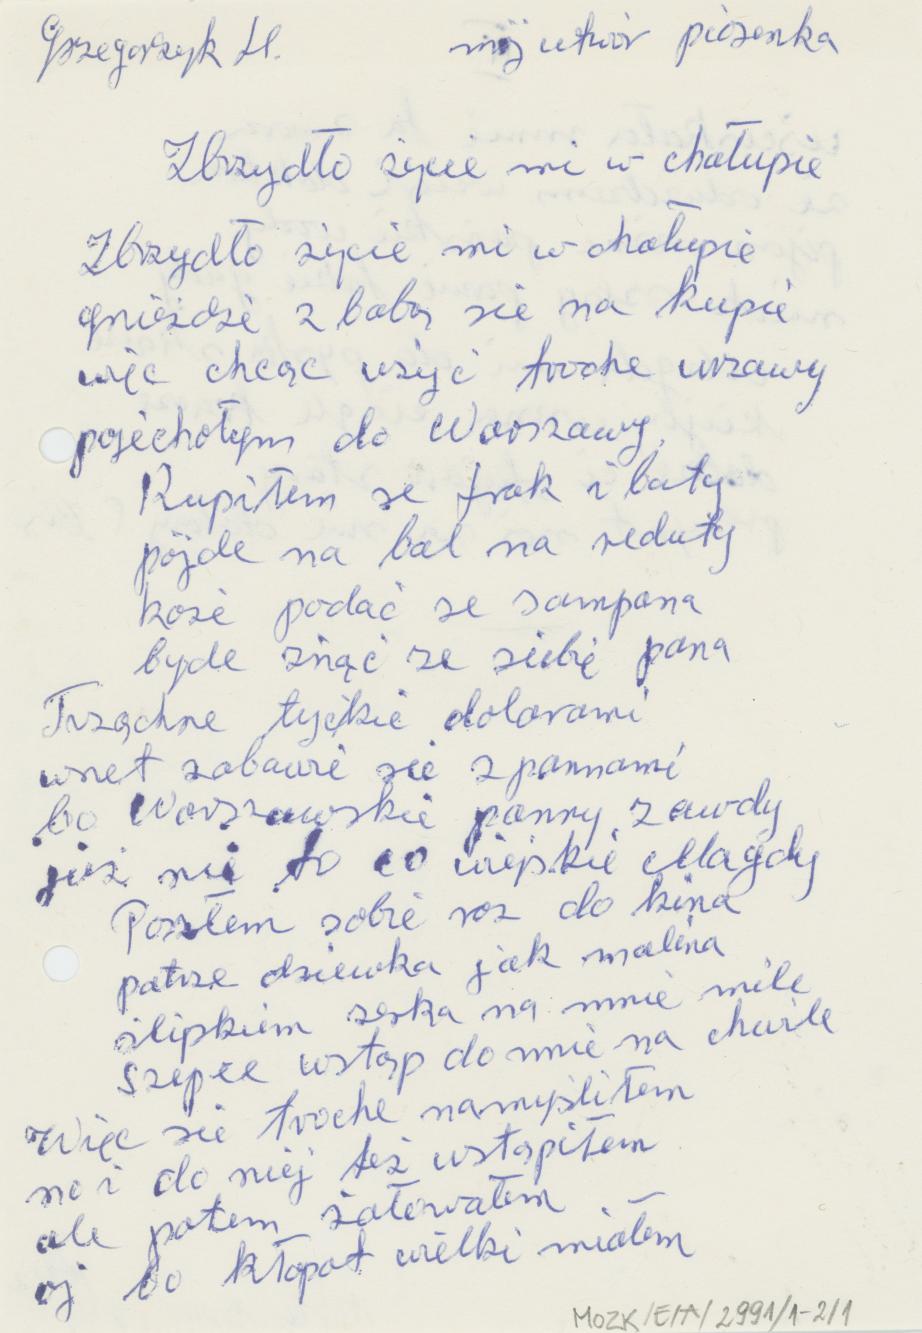 Grzegorzyk H. mój utwór piosenka
Zbrzydło życie mi w chałupie
Zbrzydło życie mi w chałupie
gnieżdżę z babą sie na kupie
więc chcąc użyć troche wrzawy
pojechołym do Warszawy.
Kupiłem se frak i buty
pójde na bal na reduty
każe podać se sampana
byde znać ze siebie pana
Trząchne tyćkie dolarami
wnet zabawie sie z pannami
bo Warszawskie panny zawdy
już nie to co wiejskie Magdy
Poszłem sobie roz do kina
patrze dziewka jak malina
slipkiem zerka na mnie mile
szepce wstąp do mnie na chwile
Więc sie troche namyśliłem
no i do niej też wstąpiłem
ale potem żałowałem
oj bo kłopot wielki miałem
MOZK/E/A/2991/1-2/1